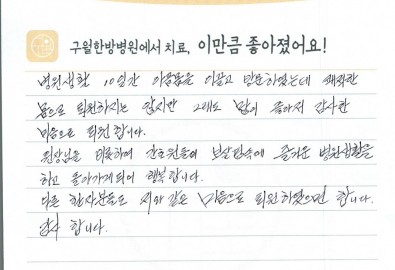 구월한방병원에서 치료, 이만큼 좋아졌어요!
병원생활 10일간 아픔몸을 이끌고 방문하였는데 쾌적한
몸으로 퇴원하지는 않지만 그래도 많이 좋아져 감사한
마음으로 퇴원 합니다.
원장님을 비롯하여 간호원들의 보살핌속에 즐거운 병원생활을
하고 돌아가게되어 행복합니다.
다른 환자분들도 저와 같은 마음으로 퇴원하였으면 합니다.
감사 합니다.